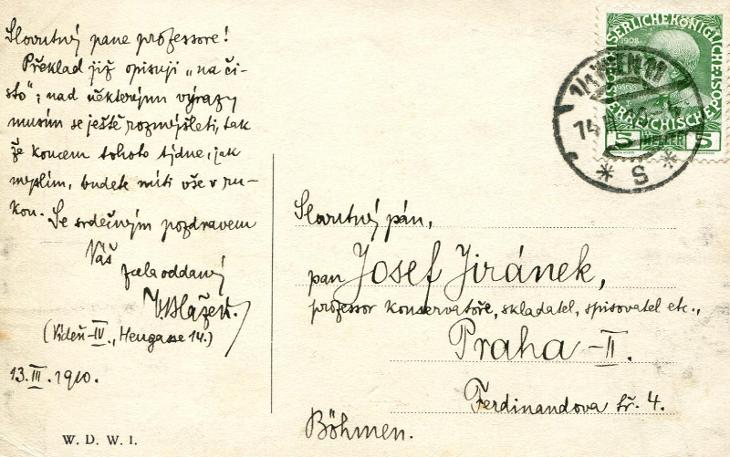 Slovutný pane professore!
Překlad již opisuji „na či-
sto“; nad některými výrazy
musím se ještě rozmýšleti, tak
že koncem tohoto týdne, jak
myslím, budete míti vše v ru-
kou. Se srdečným pozdravem
Váš
zcela oddaný
Blažek.
(Vídeň-IV., Heugasse 14.)
13.III.1910.
W. D. W. I.
KAISERLICHEKÖNIGLICHE
1908
ÖSTERREICHISCHE
5 HELLER 5
WIEN
14 III
* S *
Slovutný pán,
pan Josef Jiránek,
professor konservatoře, skladatel, spisovatel etc.,
Praha-II.
Ferdinandova tř. 4.
Böhmen.